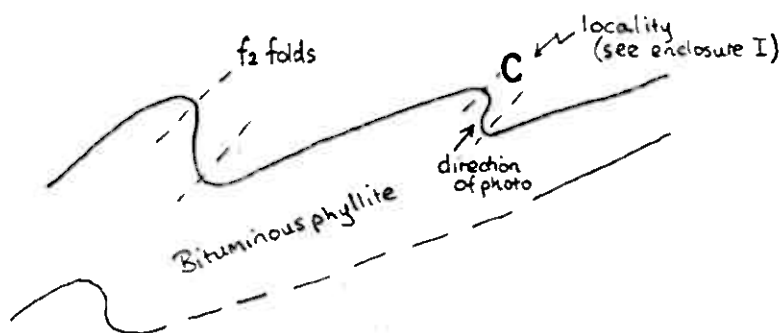 f₂ folds
C
locality
(see enclosure I)
direction
of photo
Bituminous phyllite